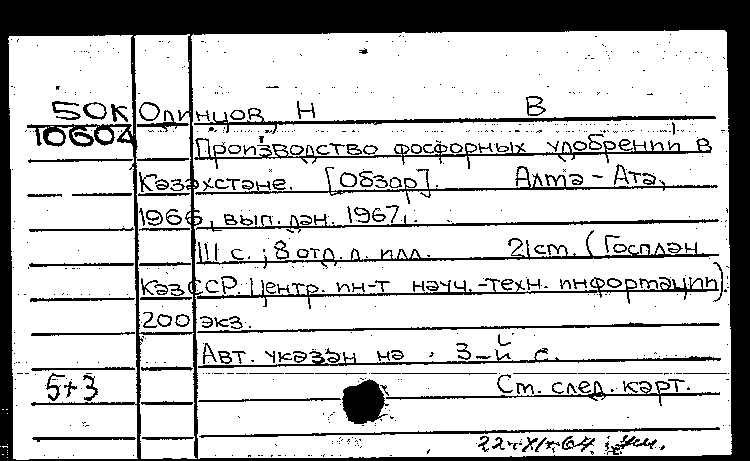 50К Одинцов, Н В
10604
Производство фосфорных удобрений в
Казахстане. [Обзор]. Алма-Ата,
1966, вып. дан. 1967.
111 с.; 8 отд. л. илл. 21 см. (Госплан
КазССР. Центр. ин-т науч.-техн. информации)
200 экз.
Авт. указан на 3-й с.
5+3 См. след. карт.